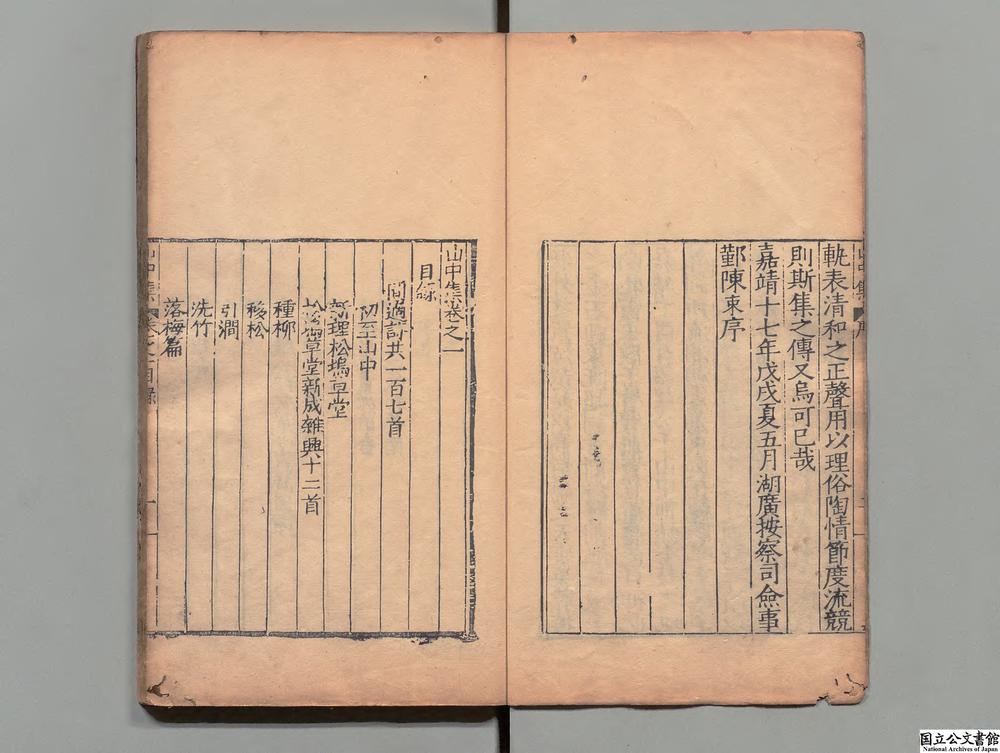 軌表清和之正聲用以理俗陶情節度流競
則斯集之傳又烏可已哉
嘉靖十七年戊戌夏五月湖廣按察司僉事
鄞陳束序
山中集卷之一
目錄
同過詩共一百七首
初至山中
新理松塢草堂
松塢草堂新成雜興十二首
種柳
移松
引澗
洗竹
落梅篇
山中集 卷之一目錄 一
国立公文書館
National Archives of Japan